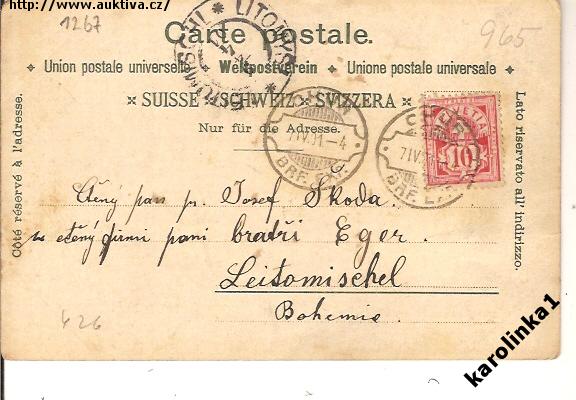 http://www.auktiva.cz/
1267
965
Carte postale.
Union postale universelle Weltpostverein Unione postale universale
SUISSE SCHWEIZ SVIZZERA
Nur für die Adresse.
Côté réservé à l'adresse.
Lato riservato all' indirizzo.
LITOMYŠL
CHUR
7.IV.91.-4
BRF.
CHUR
7.IV.91.-4
BRF.
HELVETIA
10
Ctěný pan p. Josef Škoda.
ctěný firmi paní bratří Eger.
Leitomischel
Bohemie.
426
karolinka1